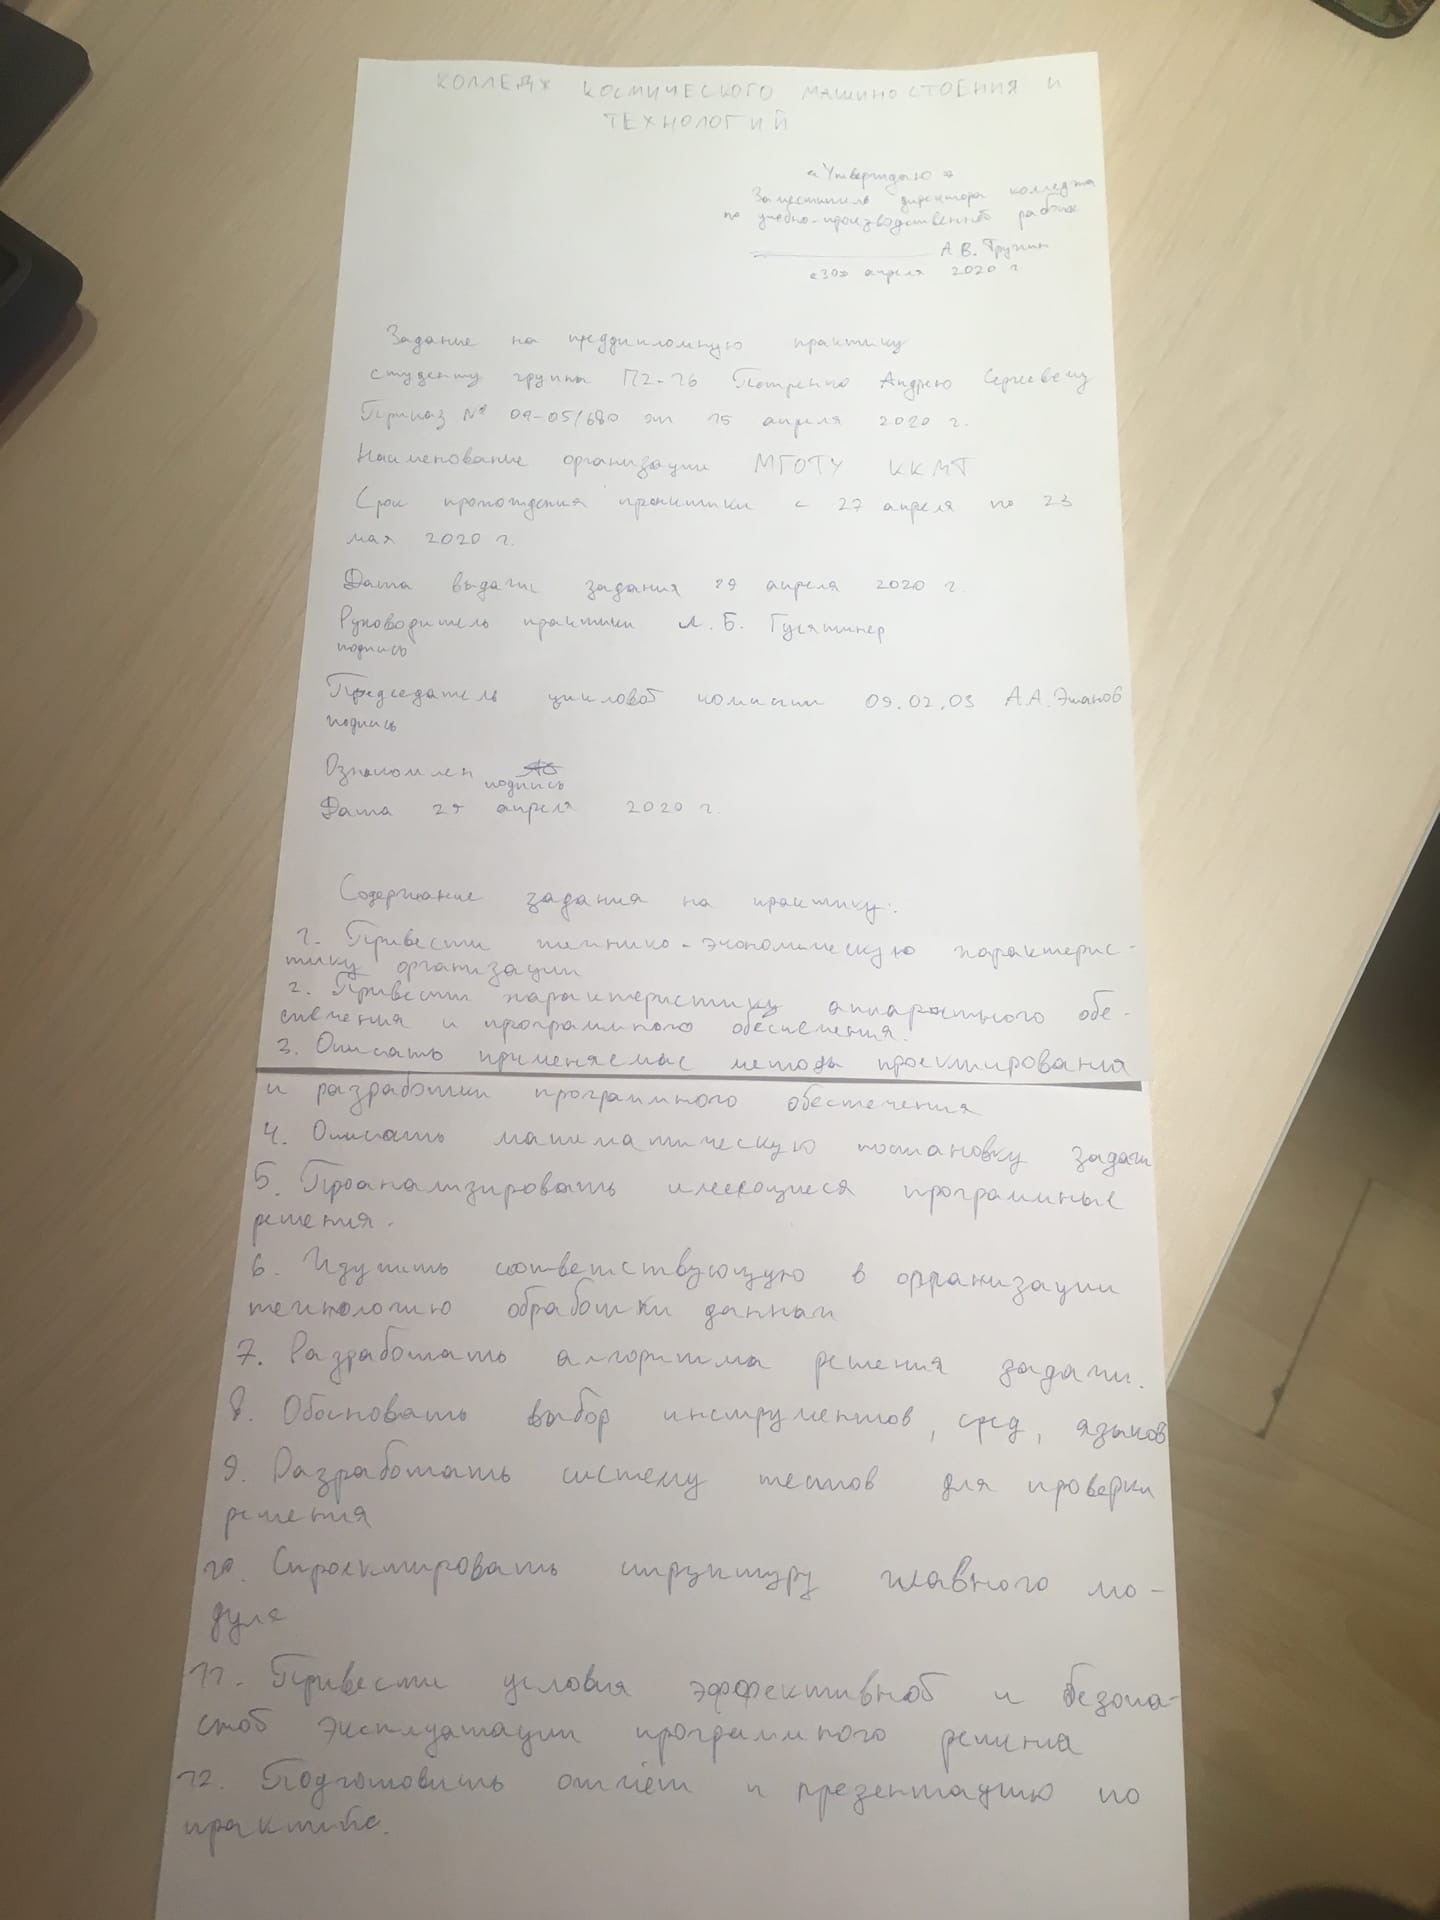 КОЛЛЕДЖ КОСМИЧЕСКОГО МАШИНОСТОЕНИЯ И
ТЕХНОЛОГИЙ
«Утверждаю»
Заместитель директора колледжа
по учебно-производственной работе
А.В. Трунин
«30» апреля 2020 г
Задание на преддипломную практику
студенту группы П2-16 Петренко Андрею Сергеевичу
Приказ № 09-05/680 от 15 апреля 2020 г.
Наименование организации МГОТУ ККМТ
Срок прохождения практики с 27 апреля по 23
мая 2020 г.
Дата выдачи задания 29 апреля 2020 г.
Руководитель практики Л.Б. Гусятинер
подпись
Председатель цикловой комиссии 09.02.03 А.А. Эманов
подпись
Ознакомлен
подпись
Дата 29 апреля 2020 г.
Содержание задания на практику:
1. Привести технико-экономическую характерис-
тику организации
2. Привести характеристику аппаратного обе-
спечения и программного обеспечения.
3. Описать применяемые методы проектирования
и разработки программного обеспечения
4. Описать математическую постановку задачи
5. Проанализировать имеющиеся программные
решения.
6. Изучить соответствующую в организации
технологию обработки данных
7. Разработать алгоритма решения задачи.
8. Обосновать выбор инструментов, сред, языков
9. Разработать систему тестов для проверки
решения
10. Спроектировать структуру главного мо-
дуля
11. Привести условия эффективной и безопа-
сной эксплуатации программного решения
12. Подготовить отчёт и презентацию по
практике.